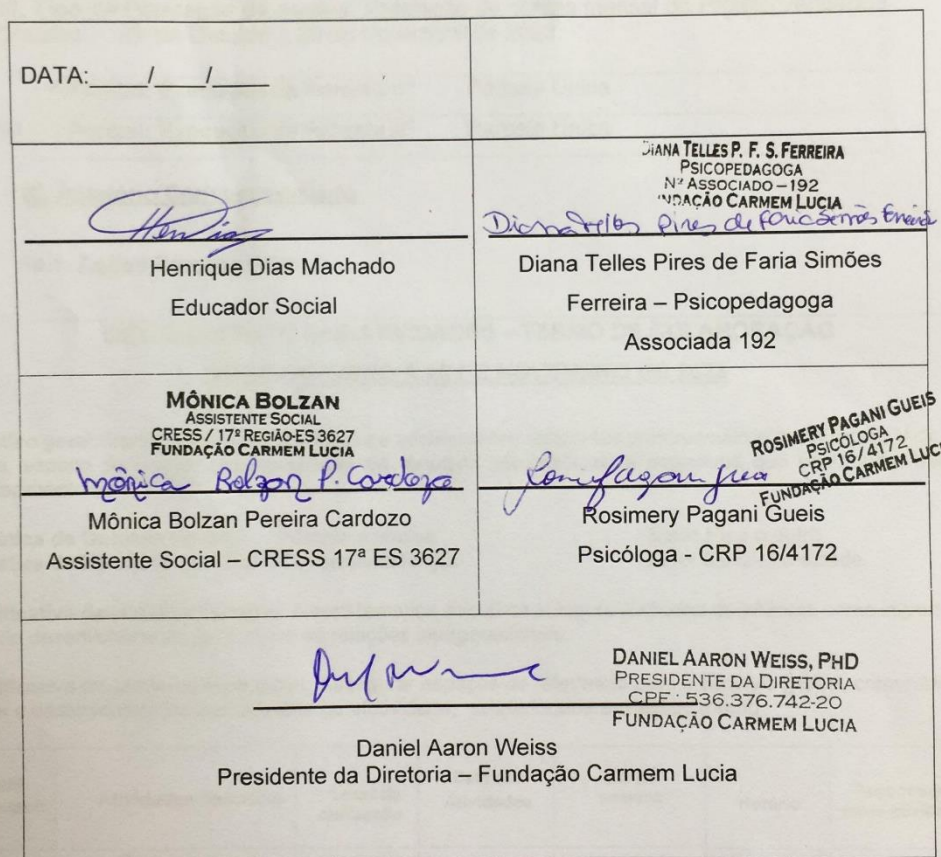 DATA: / /
Henrique Dias Machado
Educador Social
DIANA TELLES P. F. S. FERREIRA
PSICOPEDAGOGA
Nº ASSOCIADO – 192
NDAÇÃO CARMEM LUCIA
Diana Telles Pires de Faria Simões Ferreira
Diana Telles Pires de Faria Simões
Ferreira – Psicopedagoga
Associada 192
MÔNICA BOLZAN
ASSISTENTE SOCIAL
CRESS / 17ª REGIÃO-ES 3627
FUNDAÇÃO CARMEM LUCIA
Mônica Bolzan P. Cardozo
Mônica Bolzan Pereira Cardozo
Assistente Social – CRESS 17ª ES 3627
ROSIMERY PAGANI GUEIS
PSICÓLOGA
CRP 16/4172
FUNDAÇÃO CARMEM LUC
Rosimery Pagani Gueis
Psicóloga - CRP 16/4172
DANIEL AARON WEISS, PHD
PRESIDENTE DA DIRETORIA
CPF: 536.376.742-20
FUNDAÇÃO CARMEM LUCIA
Daniel Aaron Weiss
Presidente da Diretoria – Fundação Carmem Lucia